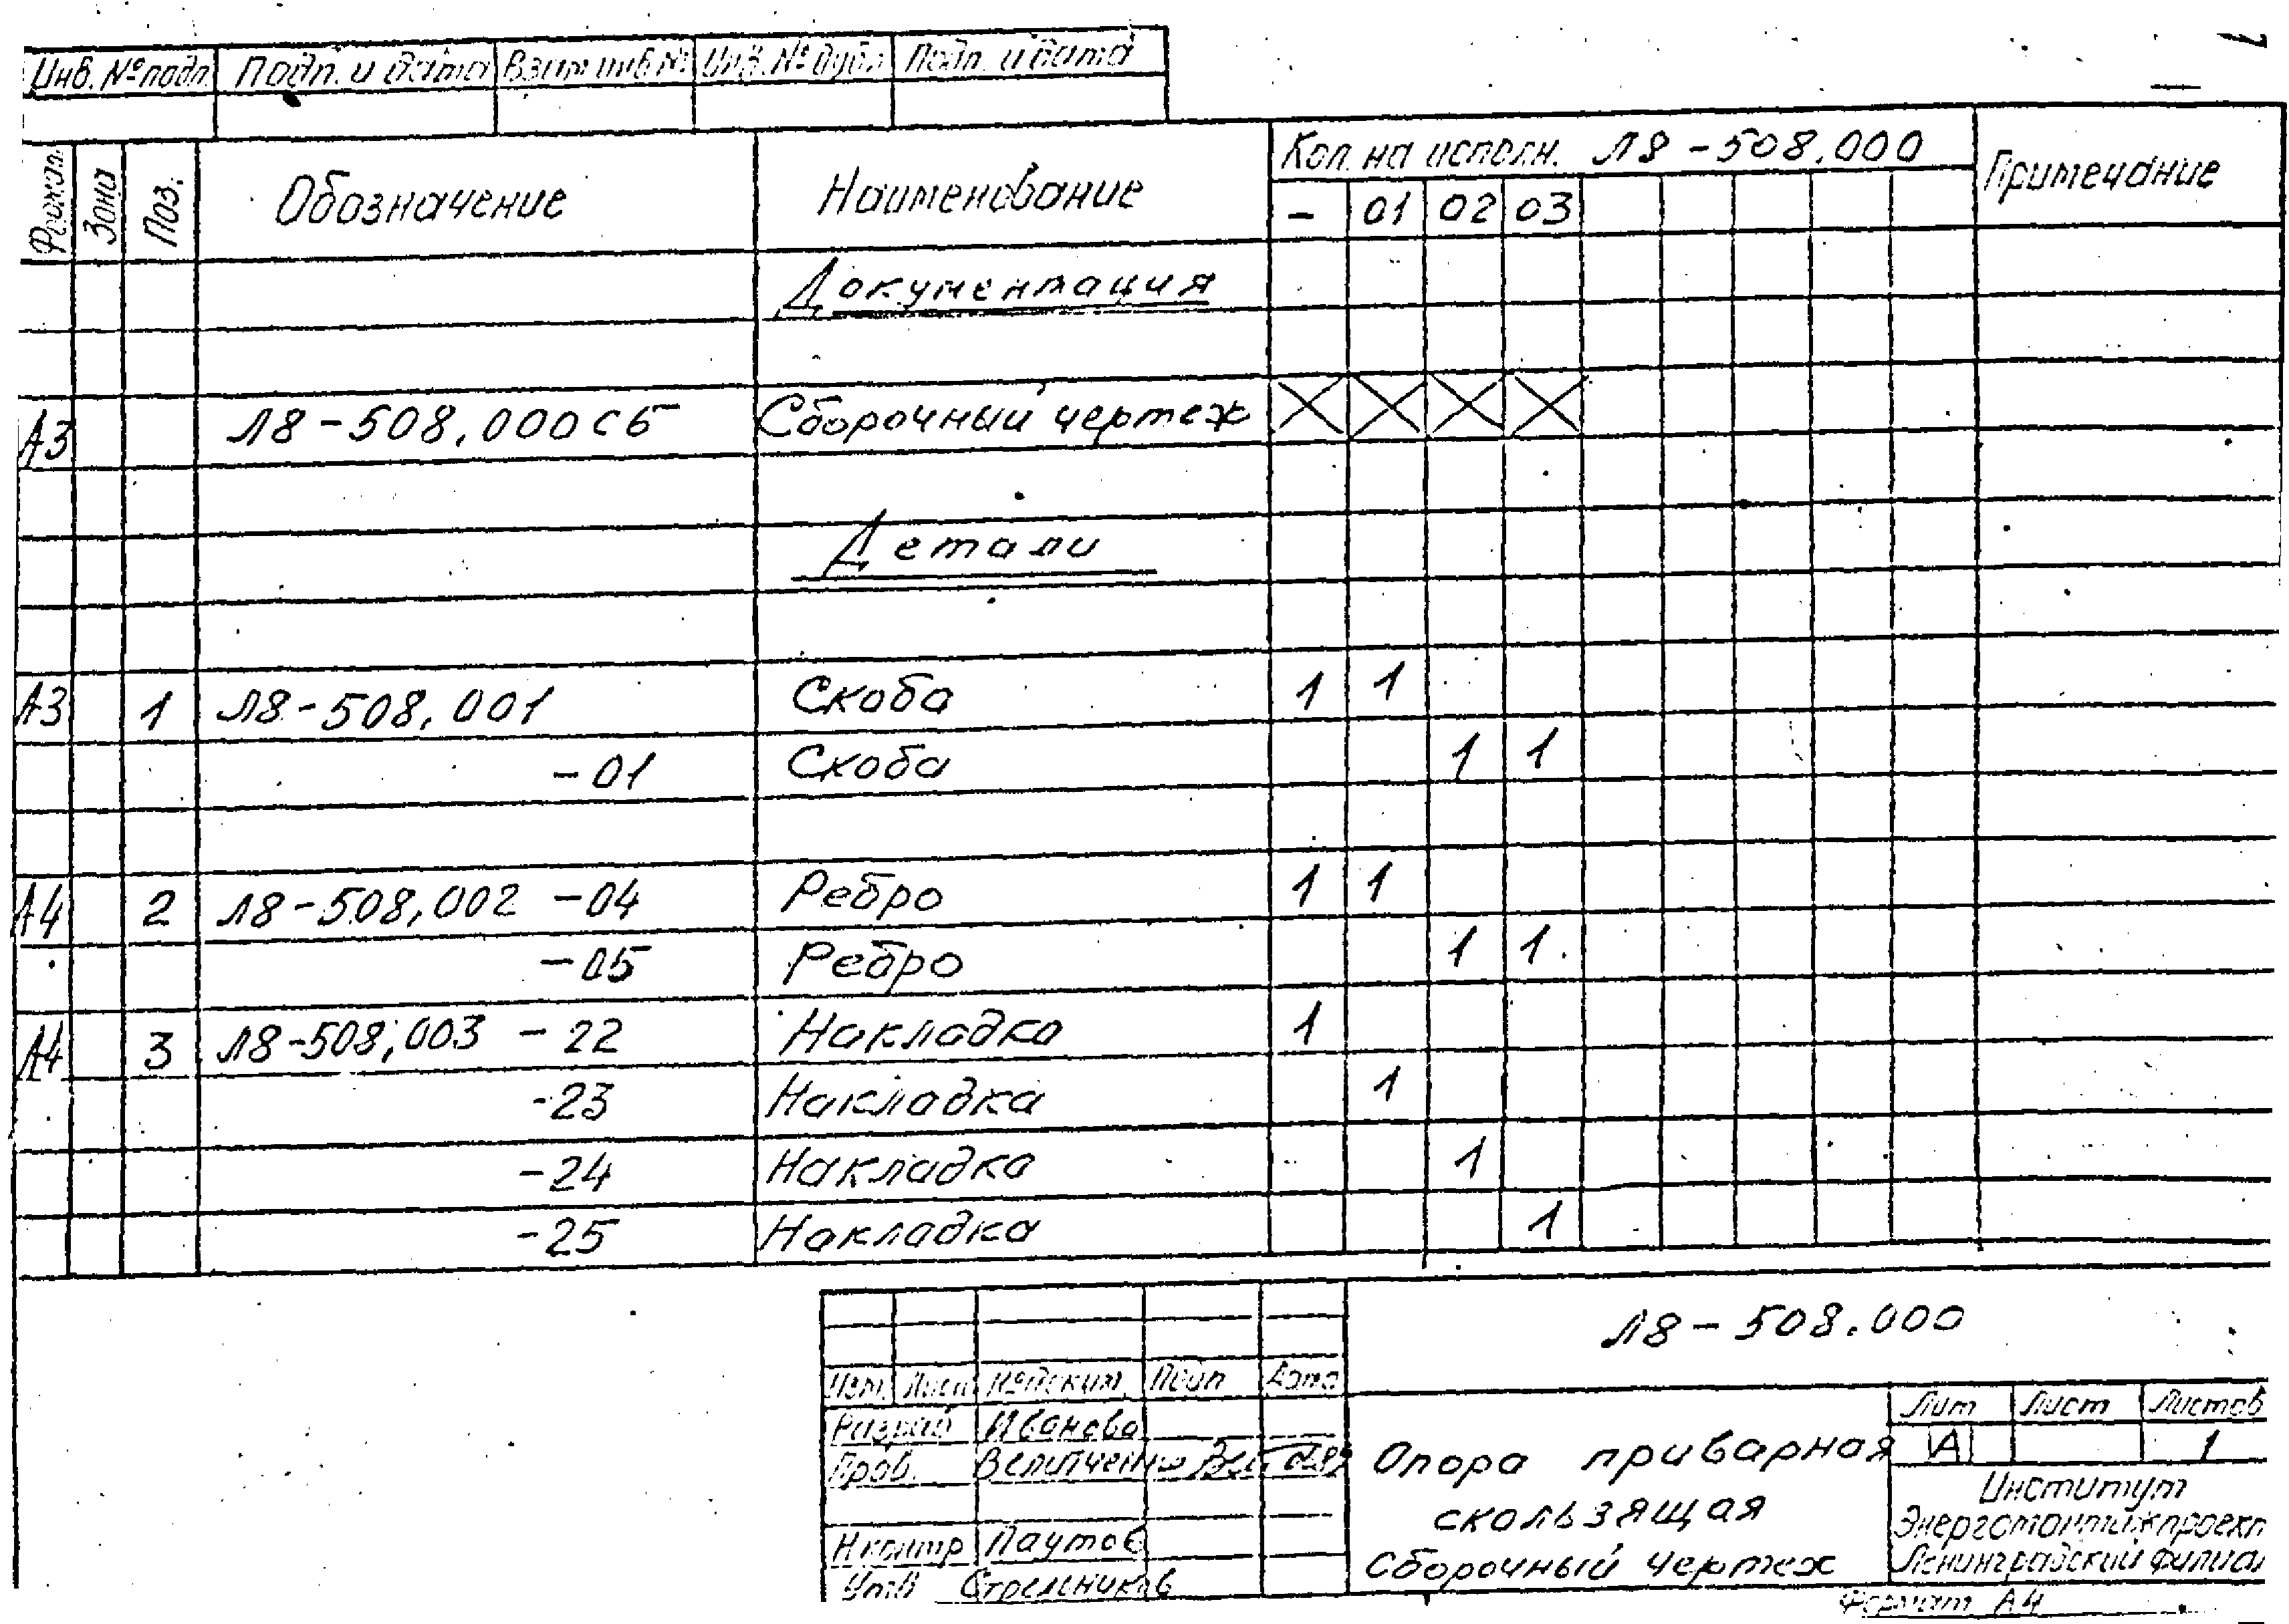 7
Инв. № подл. Подп. и дата Взам инв № Инв. № дубл Подп. и дата
Формат Зона Поз. Обозначение Наименование Кол. на исполн. Л8-508.000 Примечание
- 01 02 03
Документация
А3 Л8-508.000СБ Сборочный чертеж
Детали
А3 1 Л8-508.001 Скоба 1 1
-01 Скоба 1 1
А4 2 Л8-508.002 -04 Ребро 1 1
-05 Ребро 1 1
А4 3 Л8-508.003 -22 Накладка 1
-23 Накладка 1
-24 Накладка 1
-25 Накладка 1
Л8-508.000
Изм. Лист № докум. Подп Дата
Разраб Иванова
Пров. Величченко
Н контр Паутов
Утв Стрельников
Опора приварная
скользящая
Сборочный чертеж
Лит Лист Листов
А 1
Институт
Энергомонтажпроект
Ленинградский филиал
Формат А4